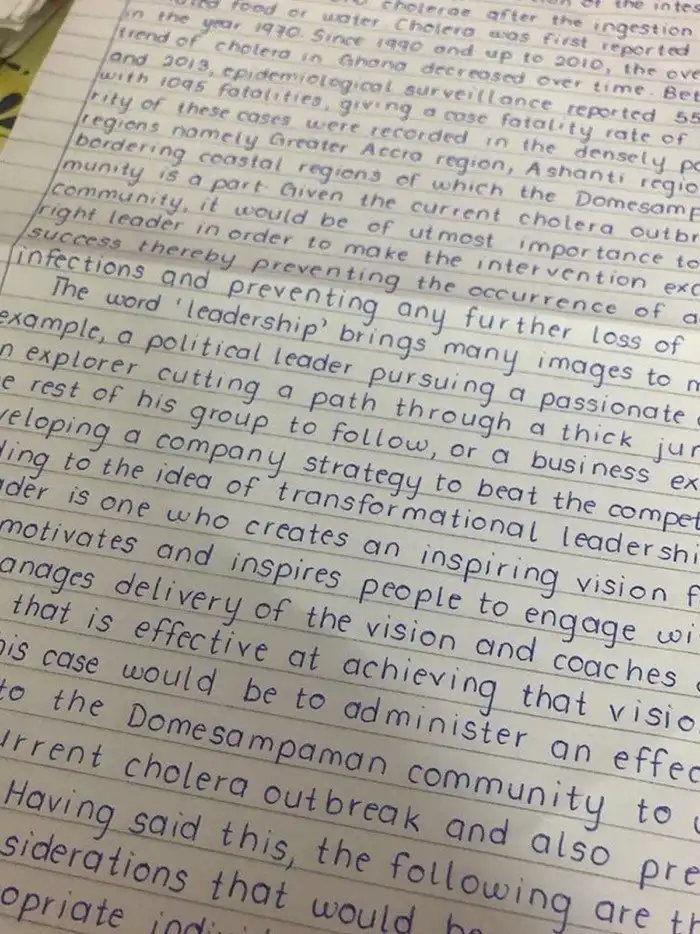 food or water Cholera was first reported
choler​ae after the ingestion
in the year 1970. Since 1990 and up to 2010, the ove
trend of cholera in Ghana decreased over time. Bet
and 2013, epidemiological surveillance reported 55
with 1095 fatalities, giving a case fatality rate of
rity of these cases were recorded in the densely po
regions namely Greater Accra region, Ashanti regio
bordering coastal regions of which the Domesamp
munity is a part. Given the current cholera outbr
community, it would be of utmost importance to
right leader in order to make the intervention exc
success thereby preventing the occurrence of a
infections and preventing any further loss of
The word 'leadership' brings many images to m
example, a political leader pursuing a passionate
n explorer cutting a path through a thick jun
e rest of his group to follow, or a business ex
veloping a company strategy to beat the compet
ding to the idea of transformational leadershi
der is one who creates an inspiring vision f
motivates and inspires people to engage wi
anages delivery of the vision and coaches
that is effective at achieving that visio
his case would be to administer an effec
to the Domesampaman community to
urrent cholera outbreak and also pre
Having said this, the following are th
siderations that would be
opriate indi